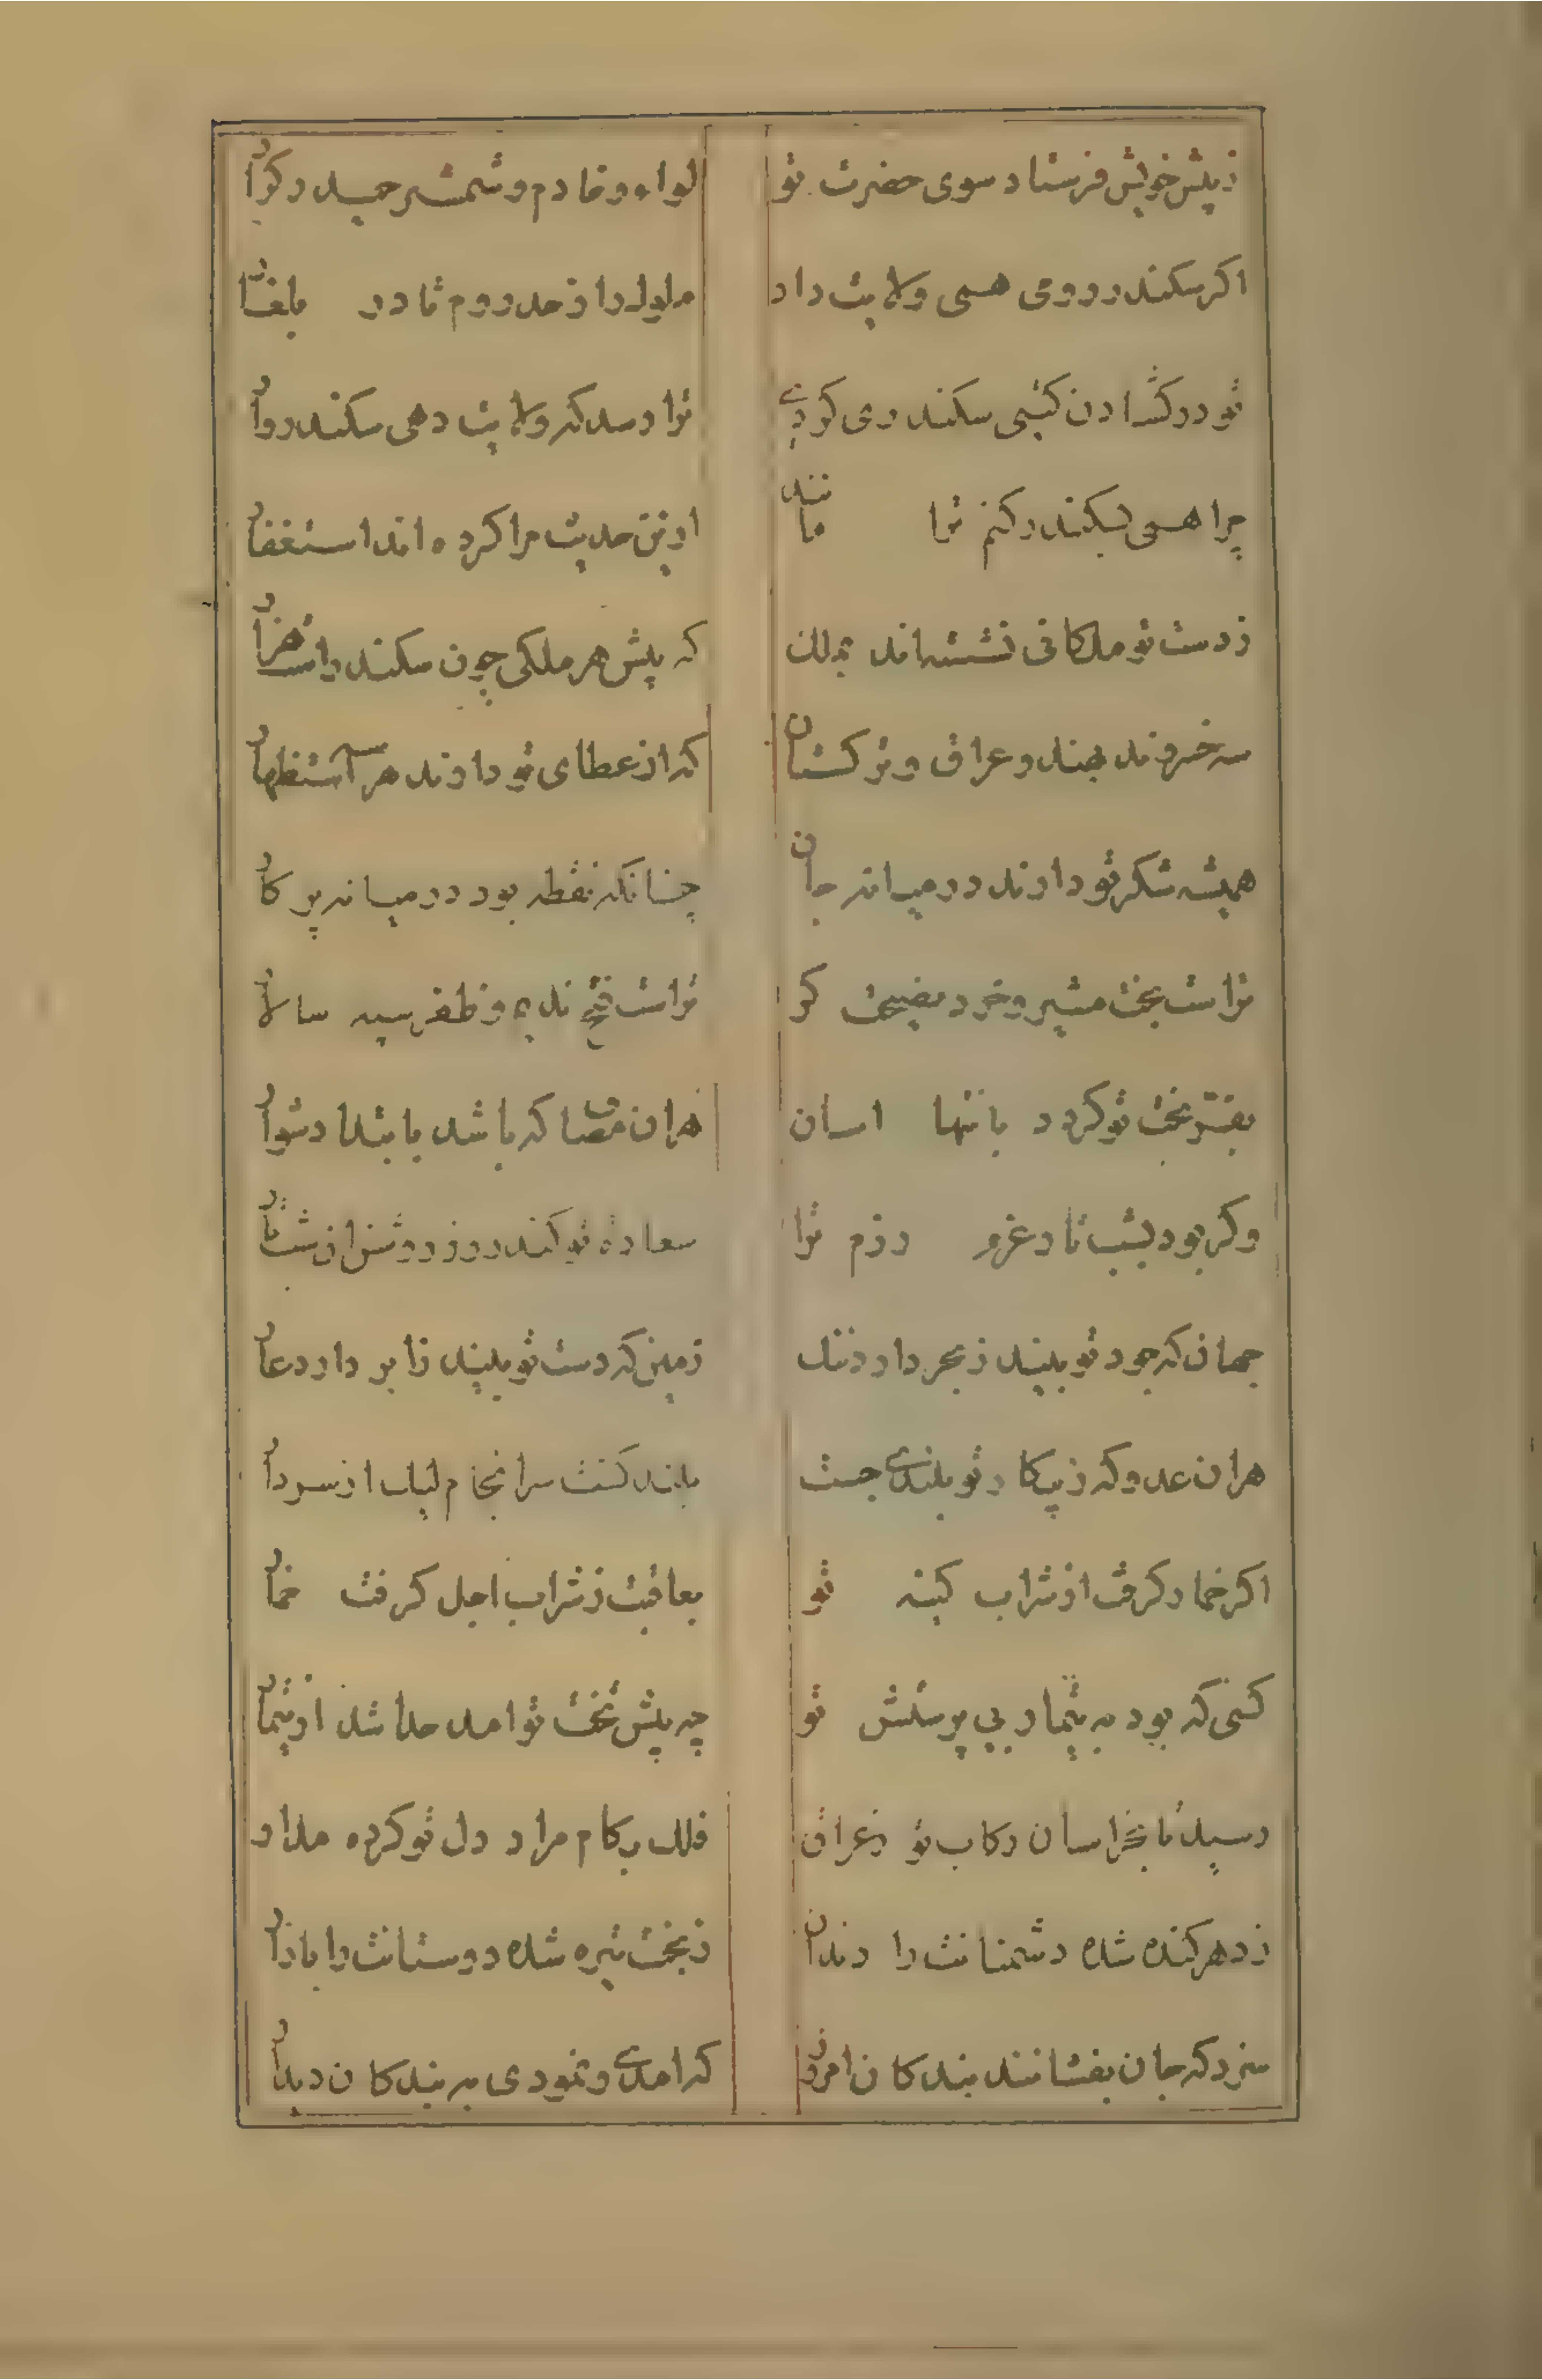 ز پیش خویش فرستاد سوی حضرت تو لواء و خادم و شمشیر حیدر کرار
اکر سکندر رومی همی ولایت داد ملوک را ز حد روم تا در بلغار
تو در کشادن کیتی سکندری کردی ترا رسد که ولایت دهی سکندروار
چرا همی بسکندر کنم ترا مانند ازین حدیث مرا کرده اند استغفار
ز دست تو ملکانی نشسته اند بملک که پیش هر ملکی چون سکندر است هزار
سه خسروند بهند و عراق و ترکستان که از عطای تو دارند هر سه استظهار
همیشه شکر تو دارند در میانه جان چنانکه نقطه بود در میانه پرکار
تراست بخت مشیر و خرد نصیحت کر تراست فتح ندیم و ظفر سپه سالار
بفر بخت تو کردد بانتها اسان هران مصاف که باشد بابتدا دشوار
وکر بود بشب تار عزم رزم ترا سعادة تو کند روز روشن از شب تار
جهان که جود تو بیند ز بحر دارد ننک زمین که دست تو بیند ز ابر دارد عار
هران عدو که ز پیکار تو بلندی جست بلند کشت سرانجام لیک از سر دار
اکر خمار کرفت از شراب کینه تو بعاقبت ز شراب اجل کرفت خمار
کسی که بود به تیمار بی پرستش تو چه پیش تخت تو امد جدا شد از تیمار
رسید تا بخراسان رکاب تو ز عراق فلک بکام مراد دل تو کرده مدار
ز دهر کنده شده دشمنانت را دندان ز بخت تیره شده دوستانت را بازار
سزد که جان بفشانند بندکان امروز که امدی و نمودی به بندکان دیدار